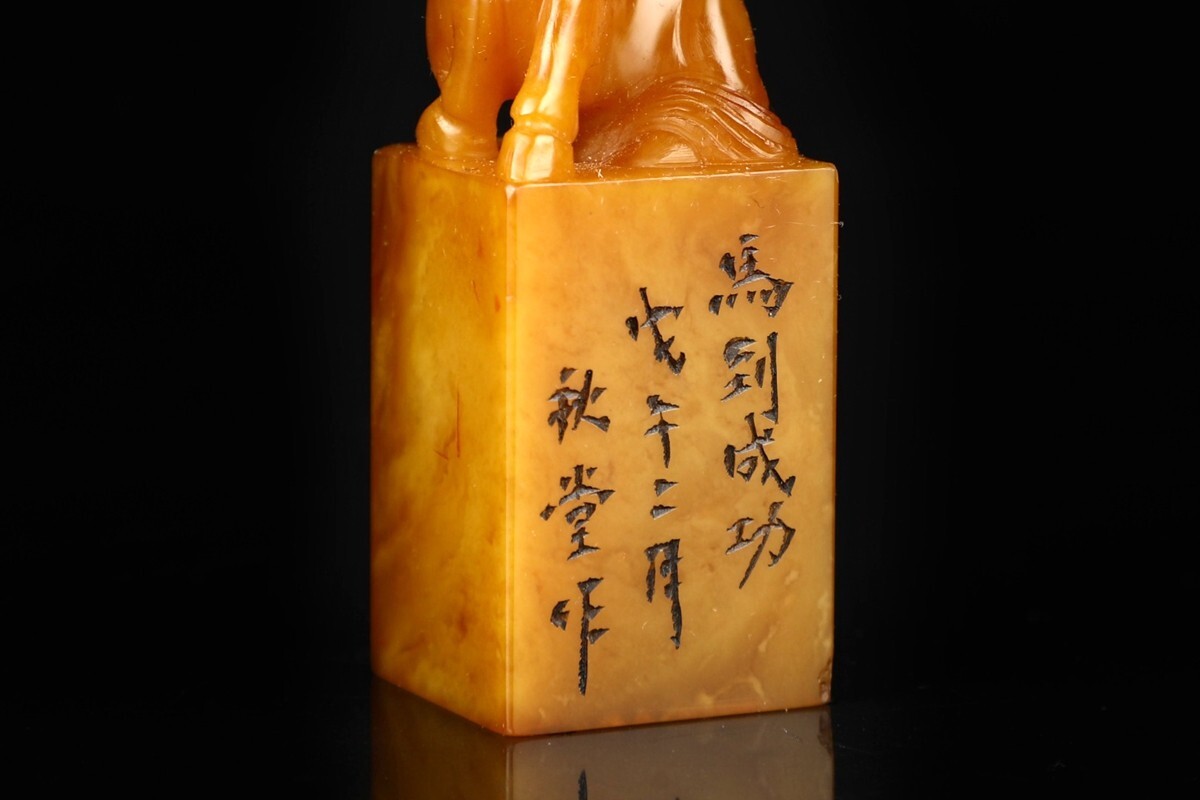 馬到成功
戊午二月
秋堂作